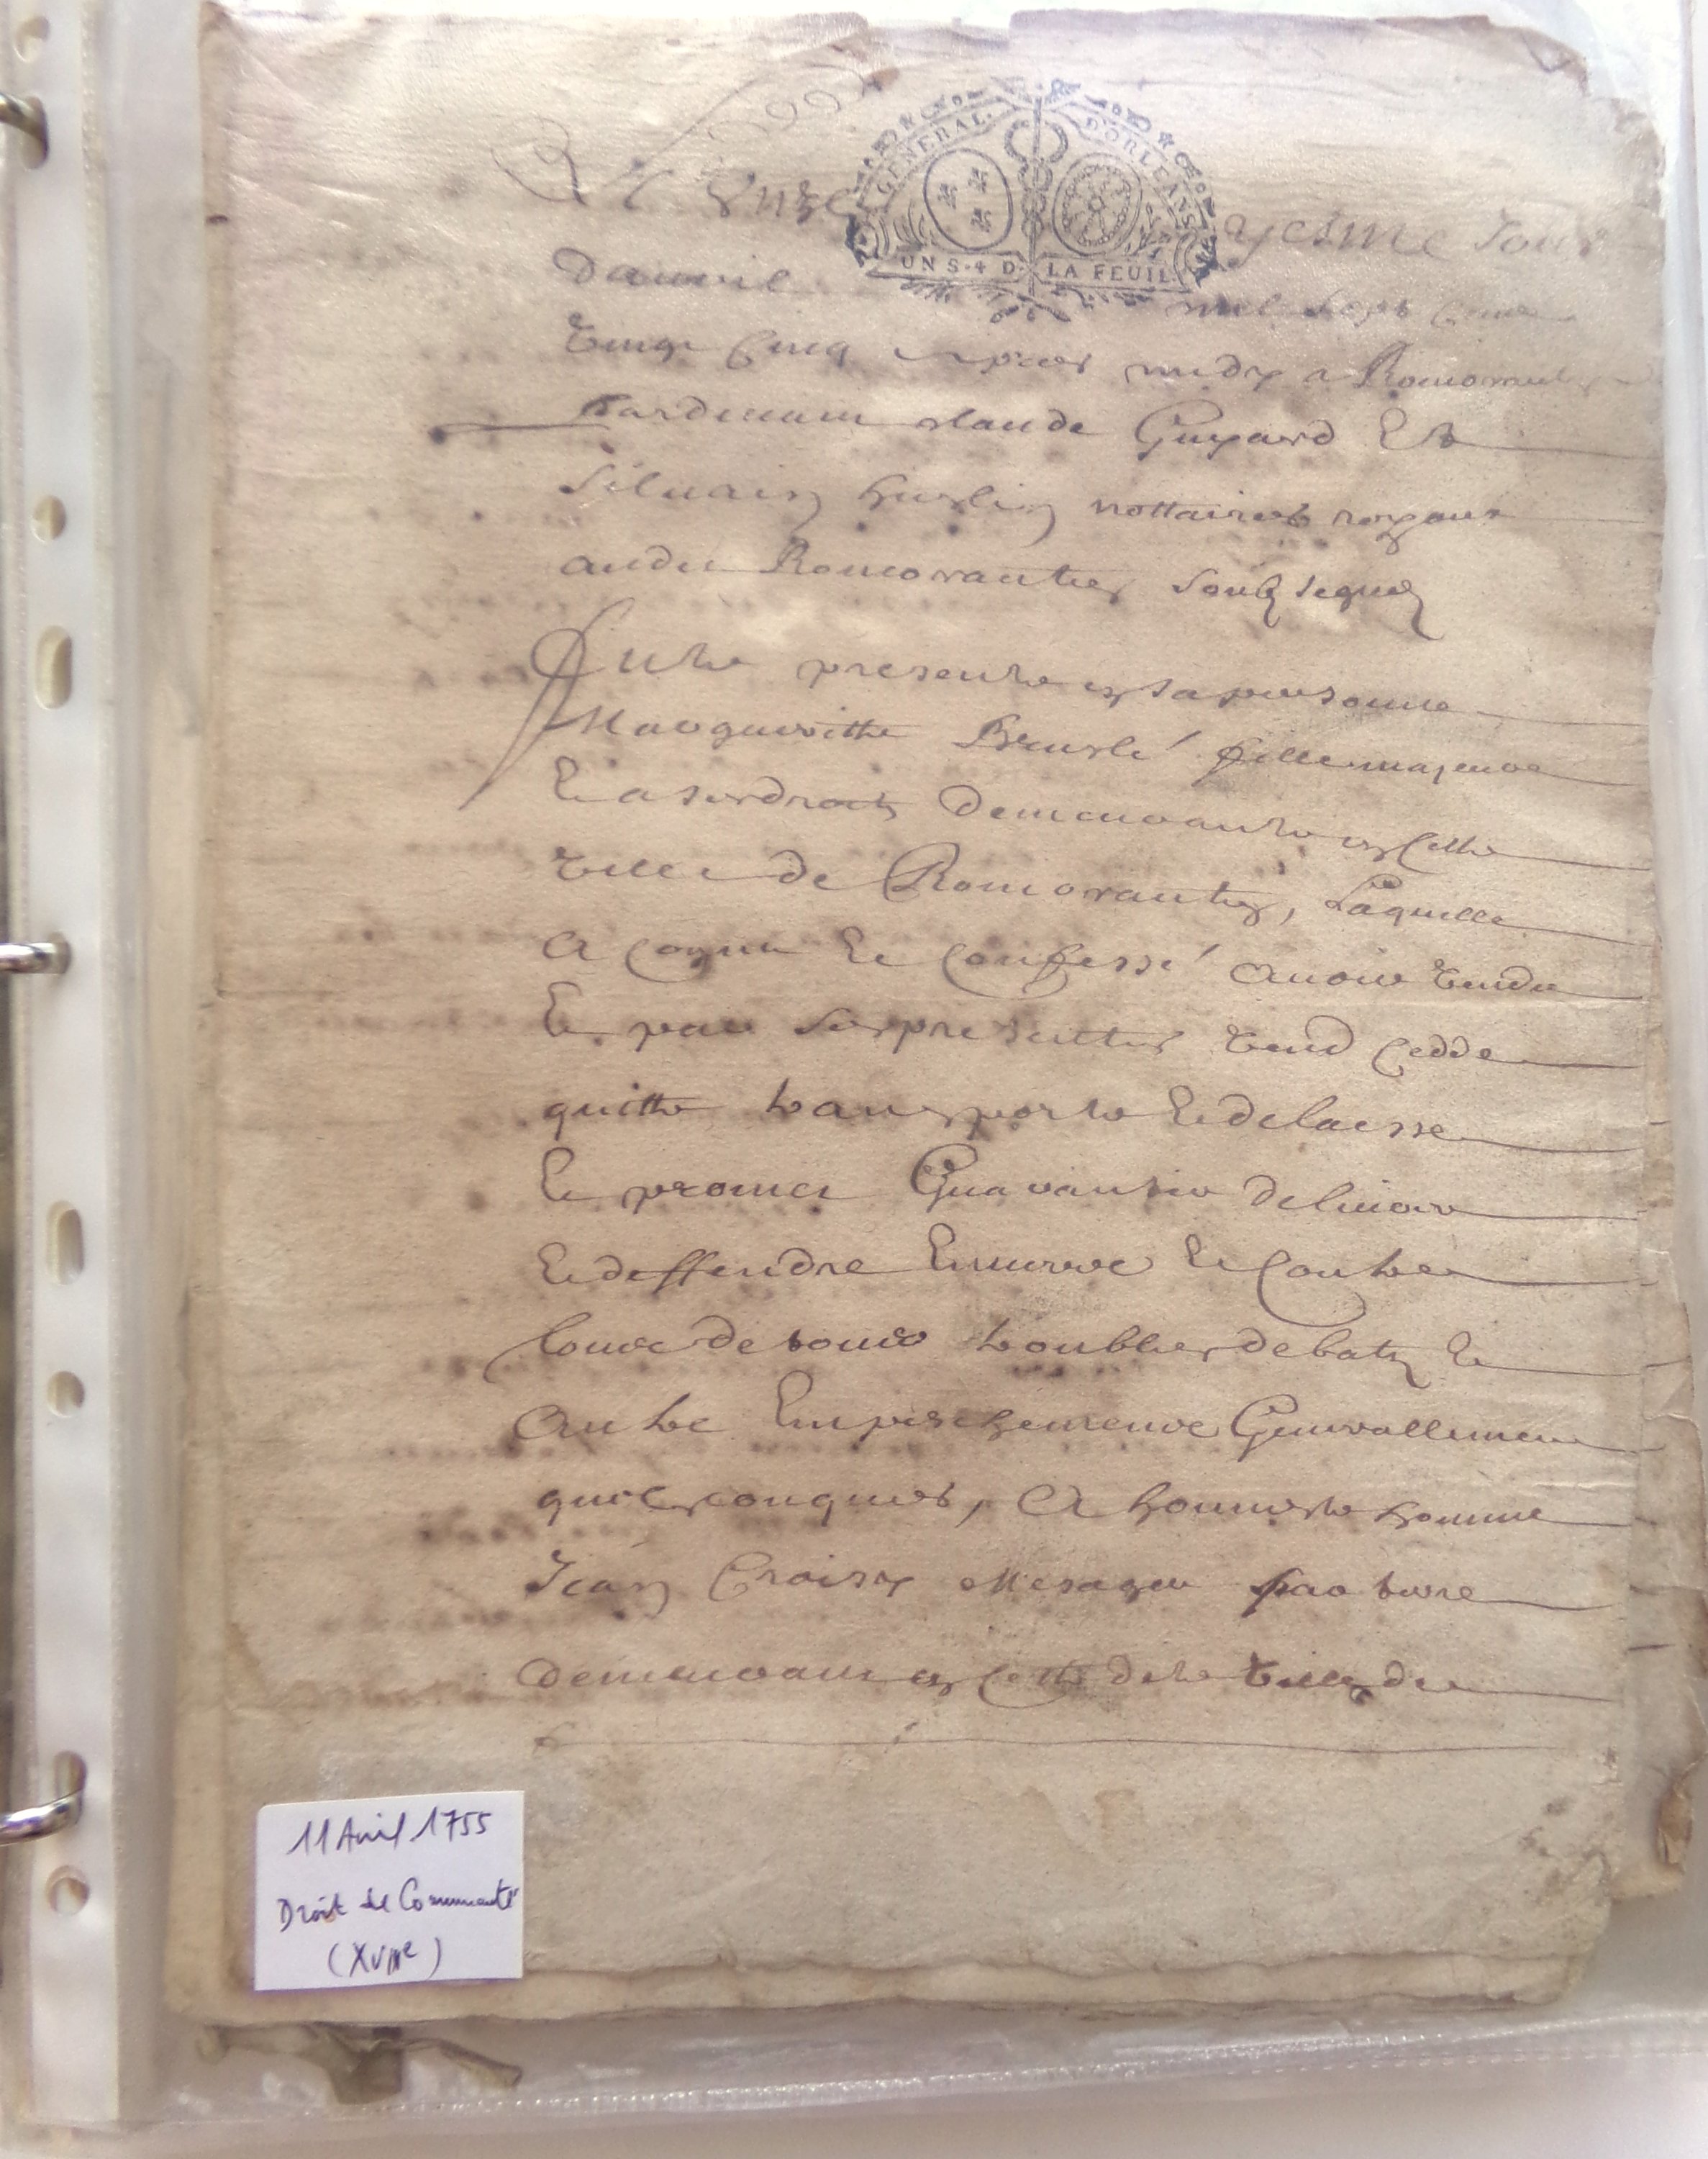 GENERAL. D'ORLEANS
UN S. 4 D. LA FEUIL.
Le Unze yesme Jour
Dauvril mil sept cens
Vingt Cinq apres midy a Romorantin
Pardevant Claude Guyard Et
Silvain hurlin nottaires royaux
audit Romorantin soubz signez
Fut presente en sa personne
Margueritte Bruslé fille majeure
Et a ses droits Demeurante en cette
Ville de Romorantin, Laquelle
A Cognu Et Confessé avoir vendu
Et par ses presentes vend Cedde
quitte transporte Et delaisse
Et promet Guarantir delivrer
Et deffendre Envers Et Contre
tous de tous troubles debatz Et
Autre Empeschements Generallement
quelsconques, A honneste homme
Jean Croisy Messager
demeurant en cette dite Ville de
11 Avril 1755
Droit de Communauté
(XVIIIe)